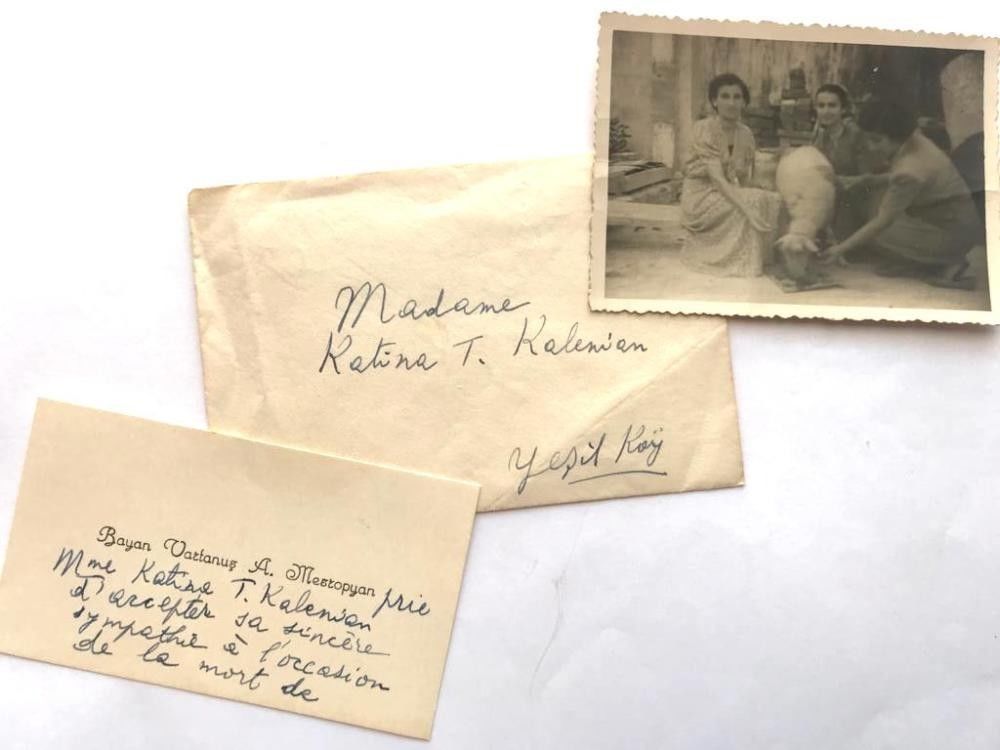 Madame
Katina T. Kalenian
Yeşil Köÿ
Bayan Vartanuş A. Mestopyan prie
Mme Katina T. Kalenian
d'accepter sa sincère
sympathie à l'occasion
de la mort de